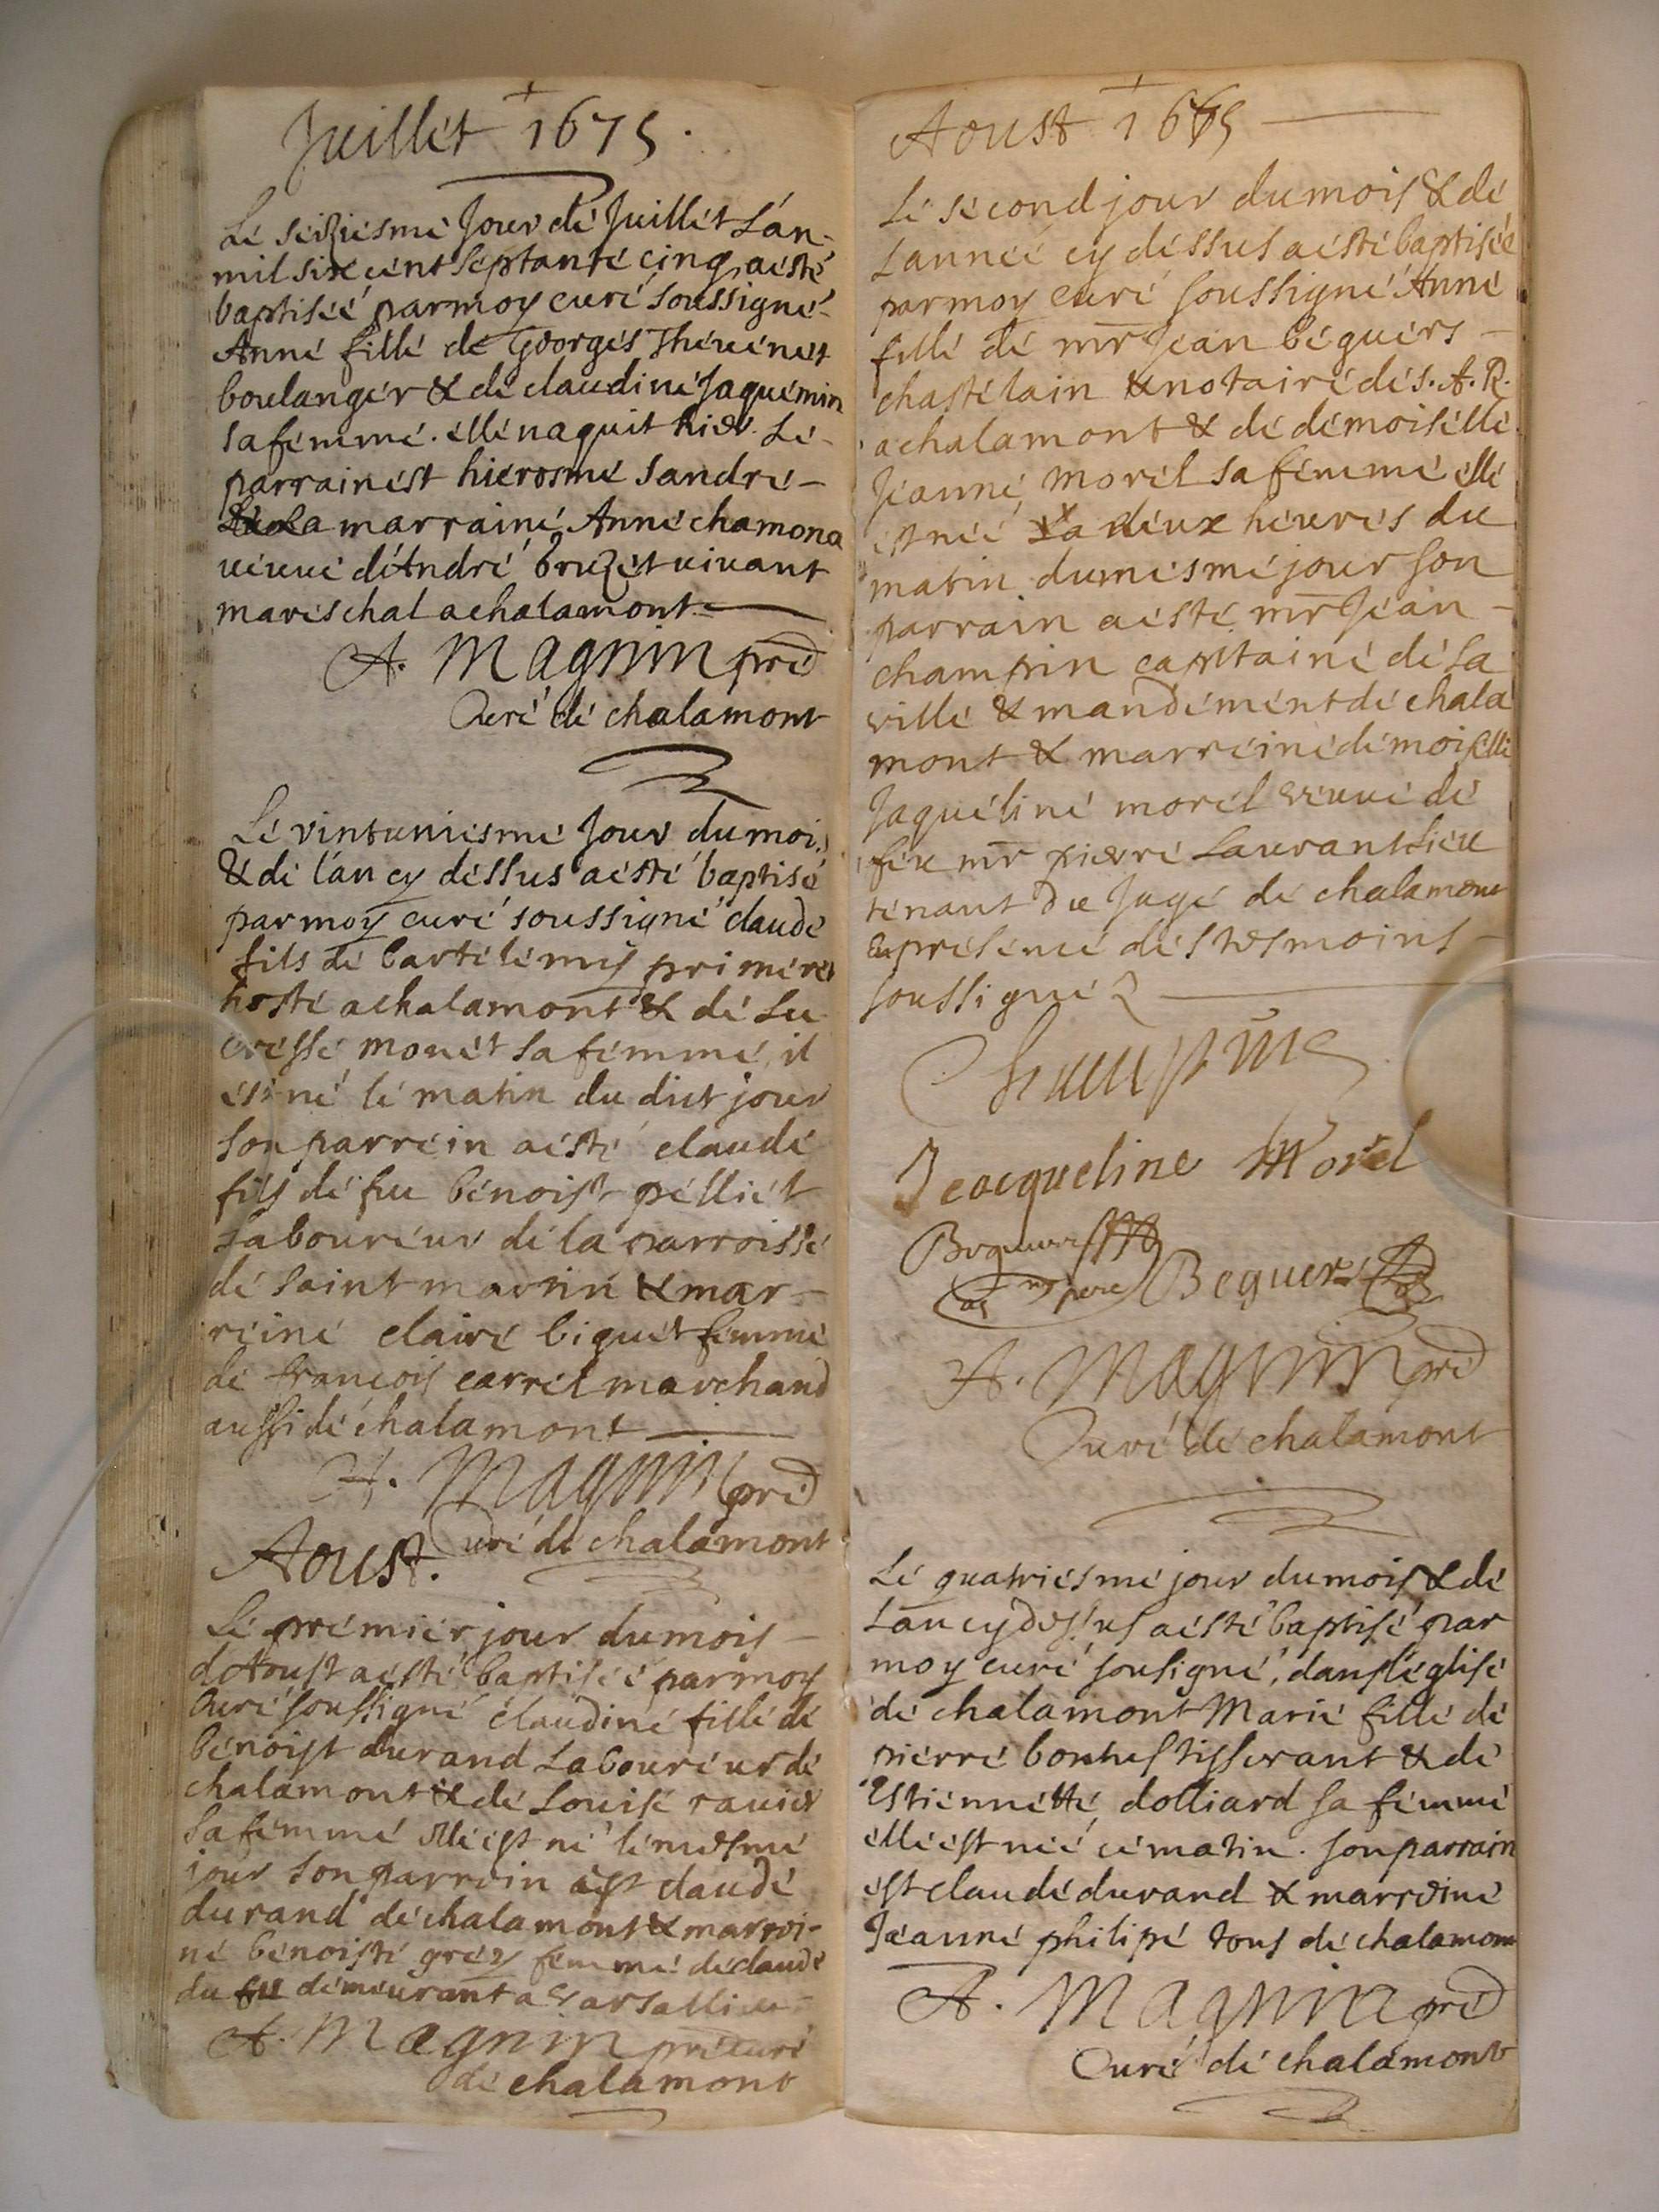 Juillet 1675.
Le seiziesme Jour de Juillet L'an
mil six cent septante cinq, a esté
baptiseé par moy curé soussigné
Anne fille de Georges Theuenet
boulanger & de claudine Jaquemin
sa femme. elle naquit hier. Le
parrain est hierosme Sandre
La marraine Anne chamona
ueuue d'André bruzet uiuant
mareschal a chalamont
A. Magnin pre
Curé de chalamont
Le vintuniesme Jour du mois
& de l'an cy dessus a esté baptisé
par moy curé soussigné claude
fils de bartelemy primeret
hoste a chalamont & de Lu
cresse monet sa femme, il
est né le matin du dict jour
son parrein a esté claude
fils de feu benoist pelliet
Laboureur de la parroisse
de saint martin & mar-
reine claire biguet femme
de françois carrel marchand
aussi de chalamont
A. Magnin pre
Curé de chalamont
Aoust.
Le premier jour du mois
d'Aoust a esté baptiseé par moy
Curé soussigné claudine fille de
benoist durand Laboureur de
chalamont & de Louise rauier
sa femme elle est né le mesme
jour son parrein est claude
durand de chalamont & marrei-
ne benoiste grezy femme de claude
du fu demeurant a
A. Magnin pre curé
de chalamont
Aoust 1675
Le second jour du mois & de
L'anneé cy dessus a esté baptiseé
par moy curé soussigné Anne
fille de mr Jean béguers
chastelain & notaire de S. A. R.
a chalamont & de demoiselle
Jeanne morel sa femme elle
est neé a deux heures du
matin du mesme jour son
parrain a esté mr Jean
champin capitaine de La
ville & mandement de chala
mont & marreine demoiselle
Jaqueline morel veuue de
feu mr pierre Laurant Lieu
tenant du Juge de chalamont
en presence des tesmoins
soussignéz
Champin
Jeacqueline Morel
Beguers
pere Beguers
A. Magnin pre
Curé de chalamont
Le quatriesme jour du mois & de
L'an cy dessus a esté baptisé par
moy curé sousigné, dans l'eglise
de chalamont Marie fille de
pierre bonnes tisserant & de
Estiennette dolliard sa femme
elle est neé ce matin. son parrain
est claude durand & marreine
Jeanne philipe tous de chalamont
A. Magnin pre
Curé de chalamont